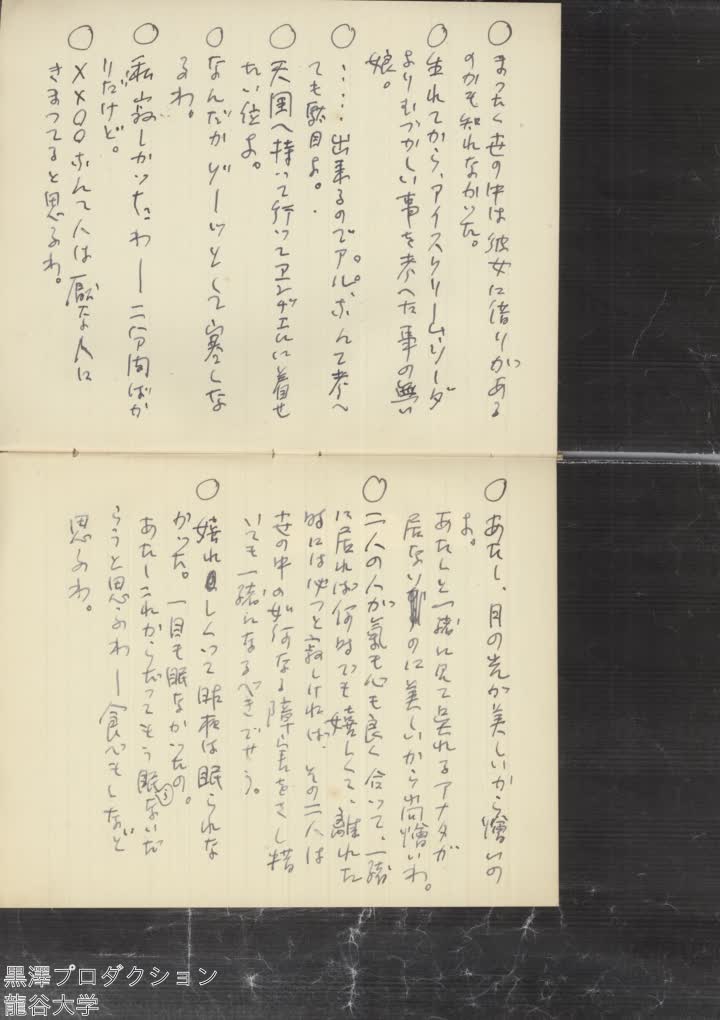 ○まったく世の中は彼女に借りがある
のかも知れなかった。
○生れてから、アイスクリームソーダ
よりむづかしい事を考へた事の無い
娘。
○‥‥出来るのでアル。ホんて考へ
ても駄目よ。
○天国へ持って行ってエンヂェルに着せ
たい位よ。
○なんだかゾーッとして寒しな
るわ。
○私寂しかったわー二分間ばか
りだけど。
○××○○ホんて人は厭な人に
きまってると思ふわ。
○あたし、月の光が美しいから憎いの
よ。
あたしと一緒に見て呉れるアナタが
居ないのに美しいから尚憎いわ。
○二人の人が氣も心も良く合って、一緒
に居れば何時でも嬉しくて、離れた
時には必っと寂しければ、その二人は
世の中の如何なる障害をさし措
いても一緒になるべきでせう。
○嬉れしくって昨夜は眠られな
かった。一目も眠なかったの。
あたしこれからだってもう眠ないだ
らうと思ふわー食心もしなど
思ふわ。
黒澤プロダクション
龍谷大学